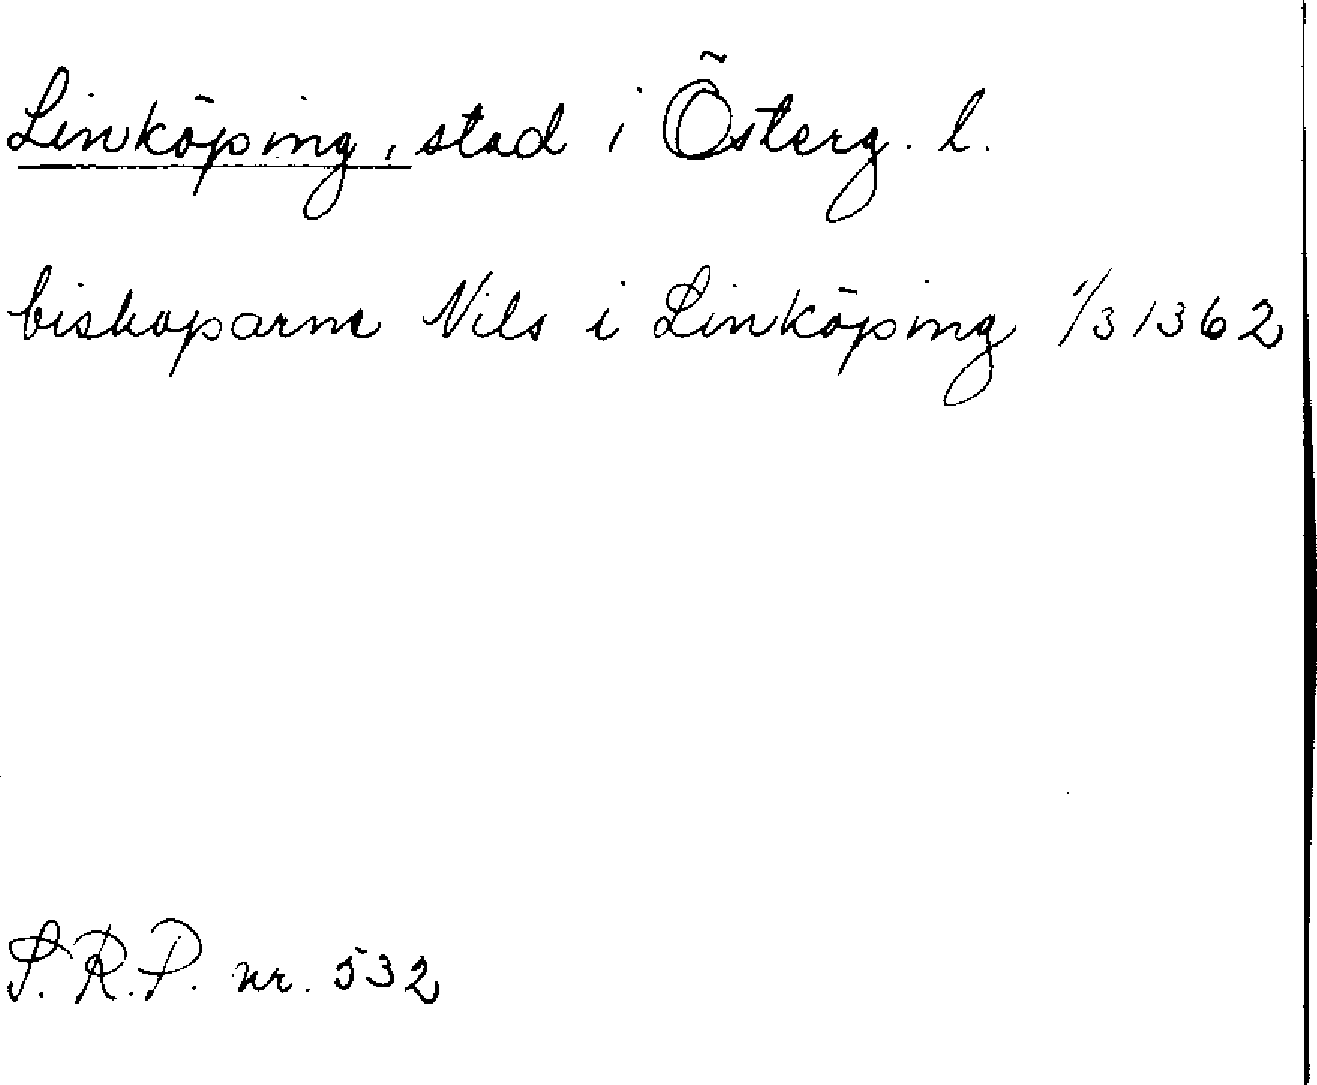 Linköping, stad i Österg. l.
biskoparne Nils i Linköping 1/3 1362
S.R.P. nr. 532